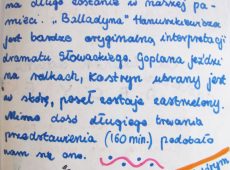 na długo zostanie w naszej pa-
mięci. „Balladyna" Hanuszkiewicza
jest bardzo oryginalną interpretacją
dramatu Słowackiego. Goplana jeździ
na rolkach, Kostryn ubrany jest
w skórę, poseł zostaje zastrzelony.
Mimo dość długiego trwania
przedstawienia (160 min.) podobało
nam się ono.